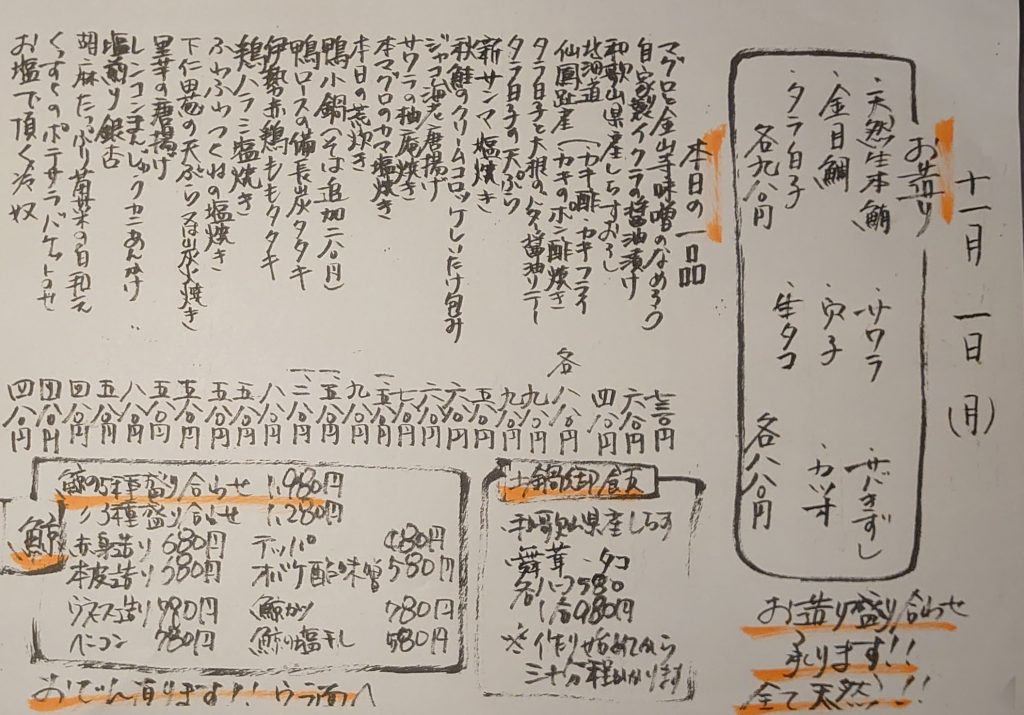 十一月一日(月)
お造り
・天然生本鮪
・金目鯛
・タラ白子
各九八〇円
・サワラ
・穴子
・生タコ
・サバきずし
・カツオ
各八八〇円
お造り盛り合わせ
承ります!!
全て天然!!
本日の一品
マグロと金山寺味噌のなめろう 七三〇円
自家製イクラの醤油漬け 六八〇円
和歌山県産しらすおろし 四八〇円
北海道 (カキ酢 カキフライ
仙鳳趾産 (カキのポン酢焼き 各 八八〇円
タラ白子と大根のバター醤油ソテー 九八〇円
タラ白子の天ぷら 九八〇円
新サンマ塩焼き 五八〇円
秋鮭のクリームコロッケしいたけ包み 六八〇円
ジャコ海老唐揚げ 六八〇円
サワラの柚庵焼き 七八〇円
本マグロのカマ塩焼き 一、五八〇円
本日の荒炊き 九八〇円
鴨小鍋(そば追加二八〇円) 一、五八〇円
鴨ロースの備長炭タタキ 一、二八〇円
伊勢赤鶏もものタタキ 八八〇円
鶏ハラミ塩焼き 五八〇円
ふわふわつくねの塩焼き 五八〇円
下仁田葱の天ぷら又は炭火焼き 五八〇円
里芋の唐揚げ 五八〇円
レンコンまんじゅうカニあんかけ 八八〇円
塩煎り銀杏 五八〇円
胡麻たっぷり菊菜の白和え 四八〇円
くんすけのポテサラバケット乗せ 四八〇円
お塩で頂く冷奴 四八〇円
鯨
鯨の5種盛り合わせ 1,980円
〃3種盛り合わせ 1,280円
赤身造り 680円 テッパ 480円
本皮造り 580円 オバケ酢味噌 580円
ウネス造り 780円 鯨カツ 780円
ベーコン 780円 鯨の塩干し 580円
おでん有ります!! ウラ面へ
土鍋御飯
和歌山県産しらす
舞茸 ・タコ
各ハーフ580
1合980円
※作り始めてから
三十分程かかります